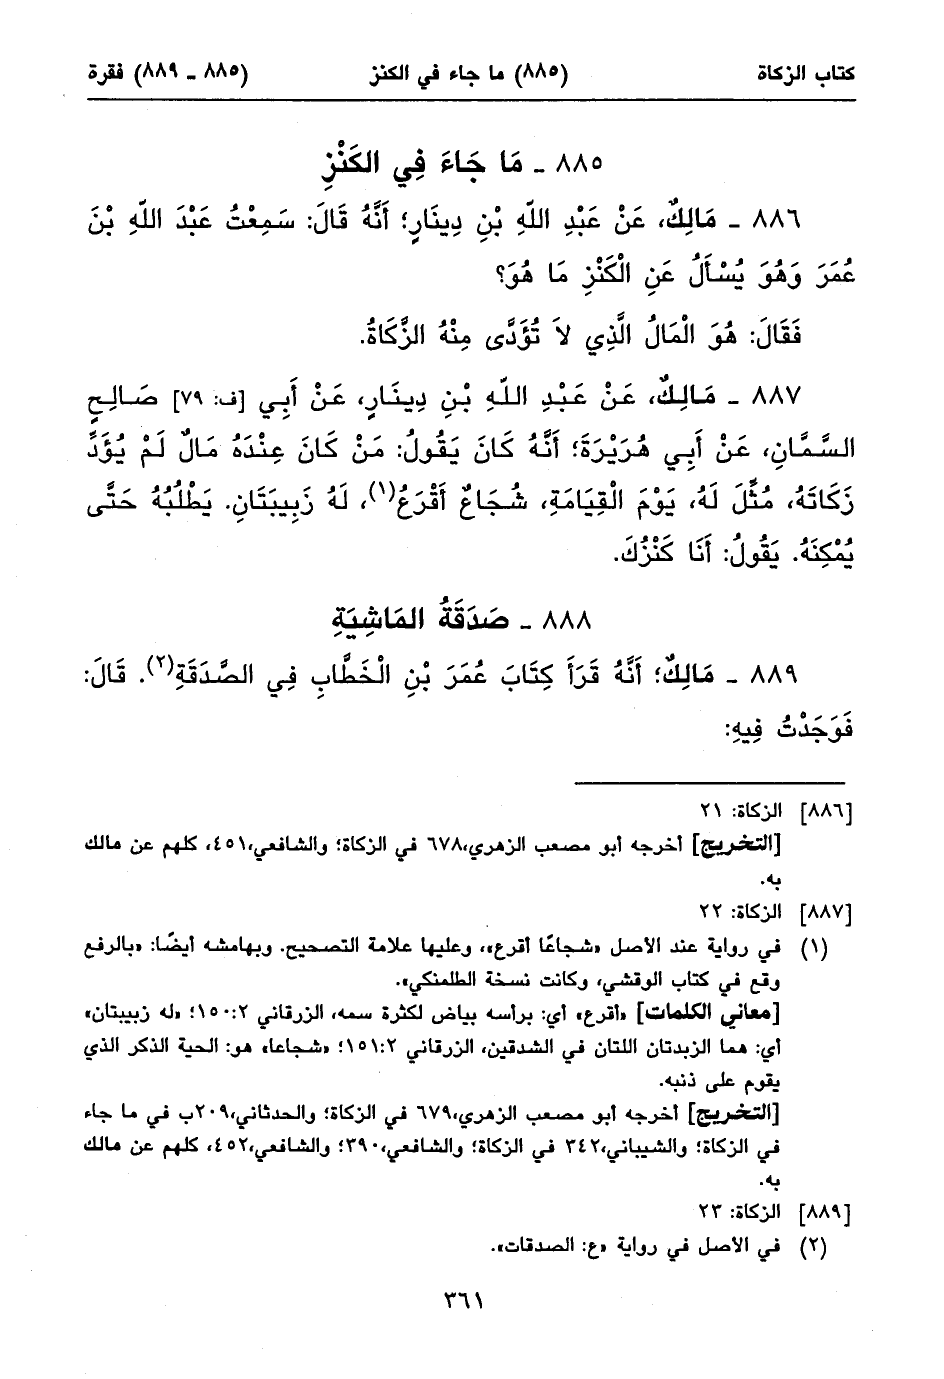 كتاب الزكاة (٨٨٥) ما جاء في الكنز (٨٨٥ ـ ٨٨٩) فقرة
٨٨٥ ـ مَا جَاءَ فِي الكَنْزِ
٨٨٦ ـ مَالِكٌ، عَنْ عَبْدِ اللّهِ بْنِ دِينَارٍ؛ أَنَّهُ قَالَ: سَمِعْتُ عَبْدَ اللّهِ بْنَ
عُمَرَ وَهُوَ يُسْأَلُ عَنِ الْكَنْزِ مَا هُوَ؟
فَقَالَ: هُوَ الْمَالُ الَّذِي لاَ تُؤَدَّى مِنْهُ الزَّكَاةُ.
٨٨٧ ـ مَالِكٌ، عَنْ عَبْدِ اللّهِ بْنِ دِينَارٍ، عَنْ أَبِي [ف: ٧٩] صَالِحٍ
السَّمَّانِ، عَنْ أَبِي هُرَيْرَةَ؛ أَنَّهُ كَانَ يَقُولُ: مَنْ كَانَ عِنْدَهُ مَالٌ لَمْ يُؤَدِّ
زَكَاتَهُ، مُثِّلَ لَهُ، يَوْمَ الْقِيَامَةِ، شُجَاعٌ أَقْرَعُ(١)، لَهُ زَبِيبَتَانِ. يَطْلُبُهُ حَتَّى
يُمْكِنَهُ. يَقُولُ: أَنَا كَنْزُكَ.
٨٨٨ ـ صَدَقَةُ المَاشِيَةِ
٨٨٩ ـ مَالِكٌ؛ أَنَّهُ قَرَأَ كِتَابَ عُمَرَ بْنِ الْخَطَّابِ فِي الصَّدَقَةِ(٢). قَالَ:
فَوَجَدْتُ فِيهِ:
[٨٨٦] الزكاة: ٢١
[التخريج] أخرجه أبو مصعب الزهري،٦٧٨ في الزكاة؛ والشافعي،٤٥١، كلهم عن مالك
به.
[٨٨٧] الزكاة: ٢٢
(١) في رواية عند الأصل «شجاعًا أقرع»، وعليها علامة التصحيح. وبهامشه أيضًا: «بالرفع
وقع في كتاب الوقشي، وكانت نسخة الطلمنكي».
[معاني الكلمات] «أقرع» أي: برأسه بياض لكثرة سمه، الزرقاني ١٥٠:٢؛ «له زبيبتان»
أي: هما الزبدتان اللتان في الشدقين، الزرقاني ١٥١:٢؛ «شجاعا» هو: الحية الذكر الذي
يقوم على ذنبه.
[التخريج] أخرجه أبو مصعب الزهري،٦٧٩ في الزكاة؛ والحدثاني،٢٠٩ب في ما جاء
في الزكاة؛ والشيباني،٣٤٢ في الزكاة؛ والشافعي،٣٩٠؛ والشافعي،٤٥٢، كلهم عن مالك
به.
[٨٨٩] الزكاة: ٢٣
(٢) في الأصل في رواية «ع: الصدقات».
٣٦١